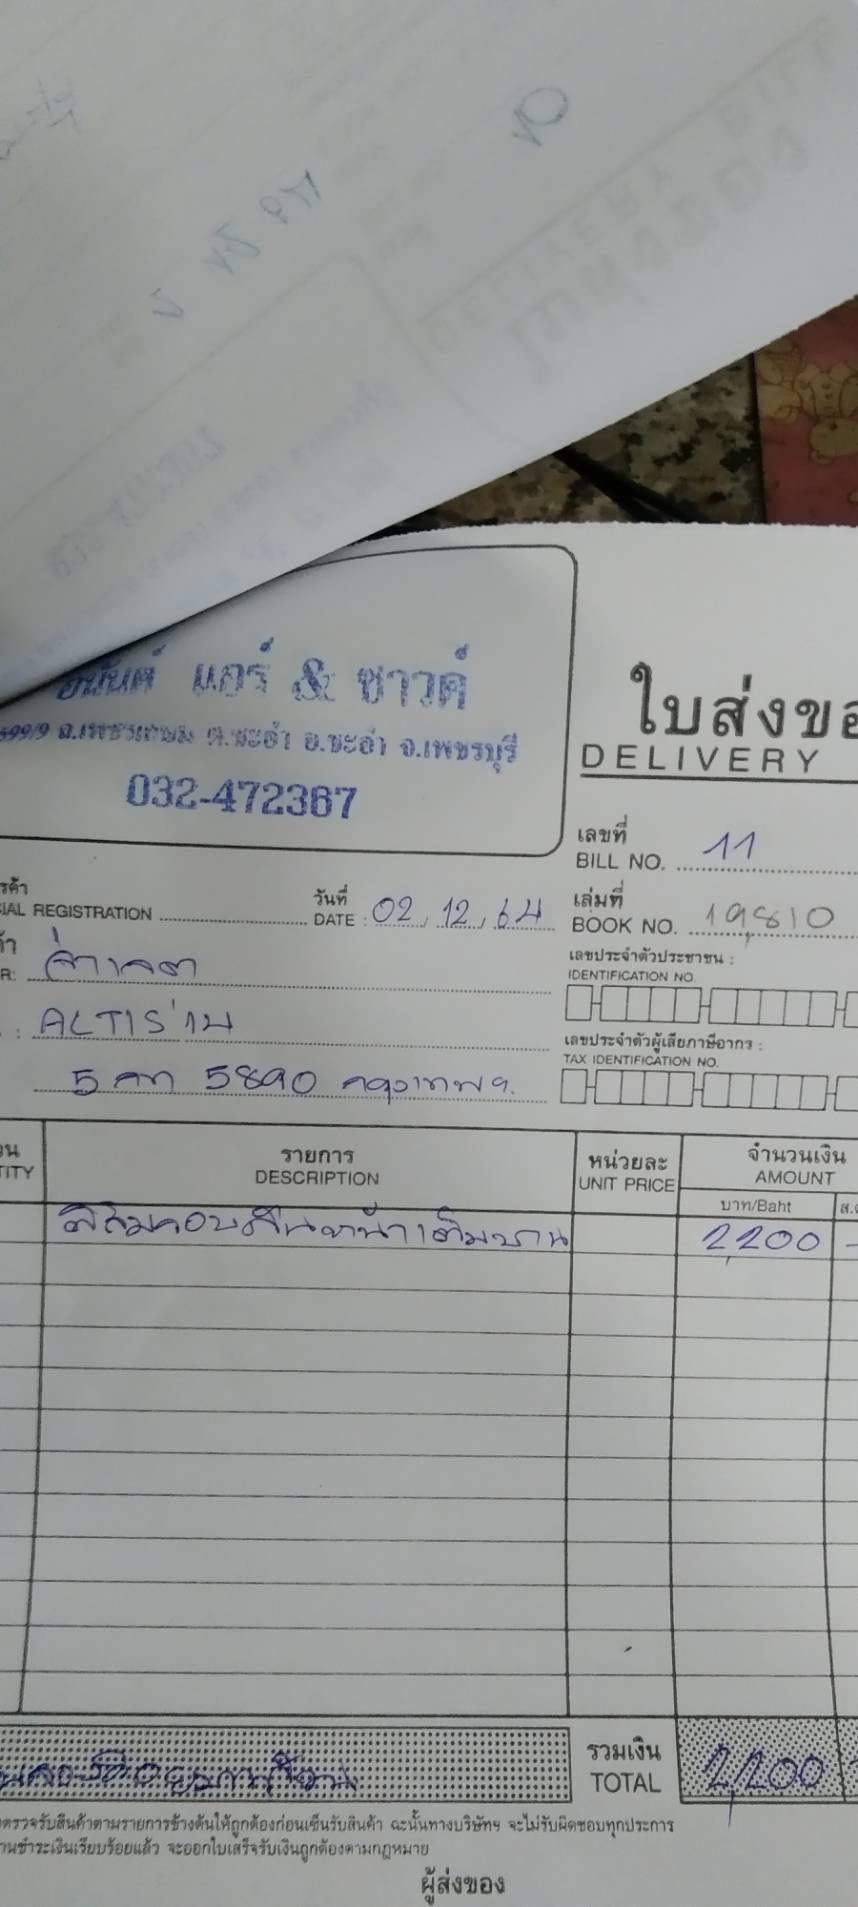 อนันต์ แอร์ & ซาวด์
699/9 ถ.เพชรเกษม ต.ชะอำ อ.ชะอำ จ.เพชรบุรี
032-472367
ใบส่งขอ
DELIVERY
เลขที่
BILL NO. 11
วันที่
DATE : 02, 12, 64
IAL REGISTRATION
เล่มที่
BOOK NO. 19,810
เลขประจำตัวประชาชน :
IDENTIFICATION NO.
R:
: ALTIS
เลขประจำตัวผู้เสียภาษีอากร :
TAX IDENTIFICATION NO.
5 กท 5890 กรุงเทพฯ.
TITY
รายการ
DESCRIPTION
หน่วยละ
UNIT PRICE
จำนวนเงิน
AMOUNT
บาท/Baht
ส.ต
2,200 -
รวมเงิน
TOTAL
2,200
ตรวจรับสินค้าตามรายการข้างต้นให้ถูกต้องก่อนเซ็นรับสินค้า ฉะนั้นทางบริษัทฯ จะไม่รับผิดชอบทุกประการ
านชำระเงินเรียบร้อยแล้ว จะออกใบเสร็จรับเงินถูกต้องตามกฎหมาย
ผู้ส่งของ